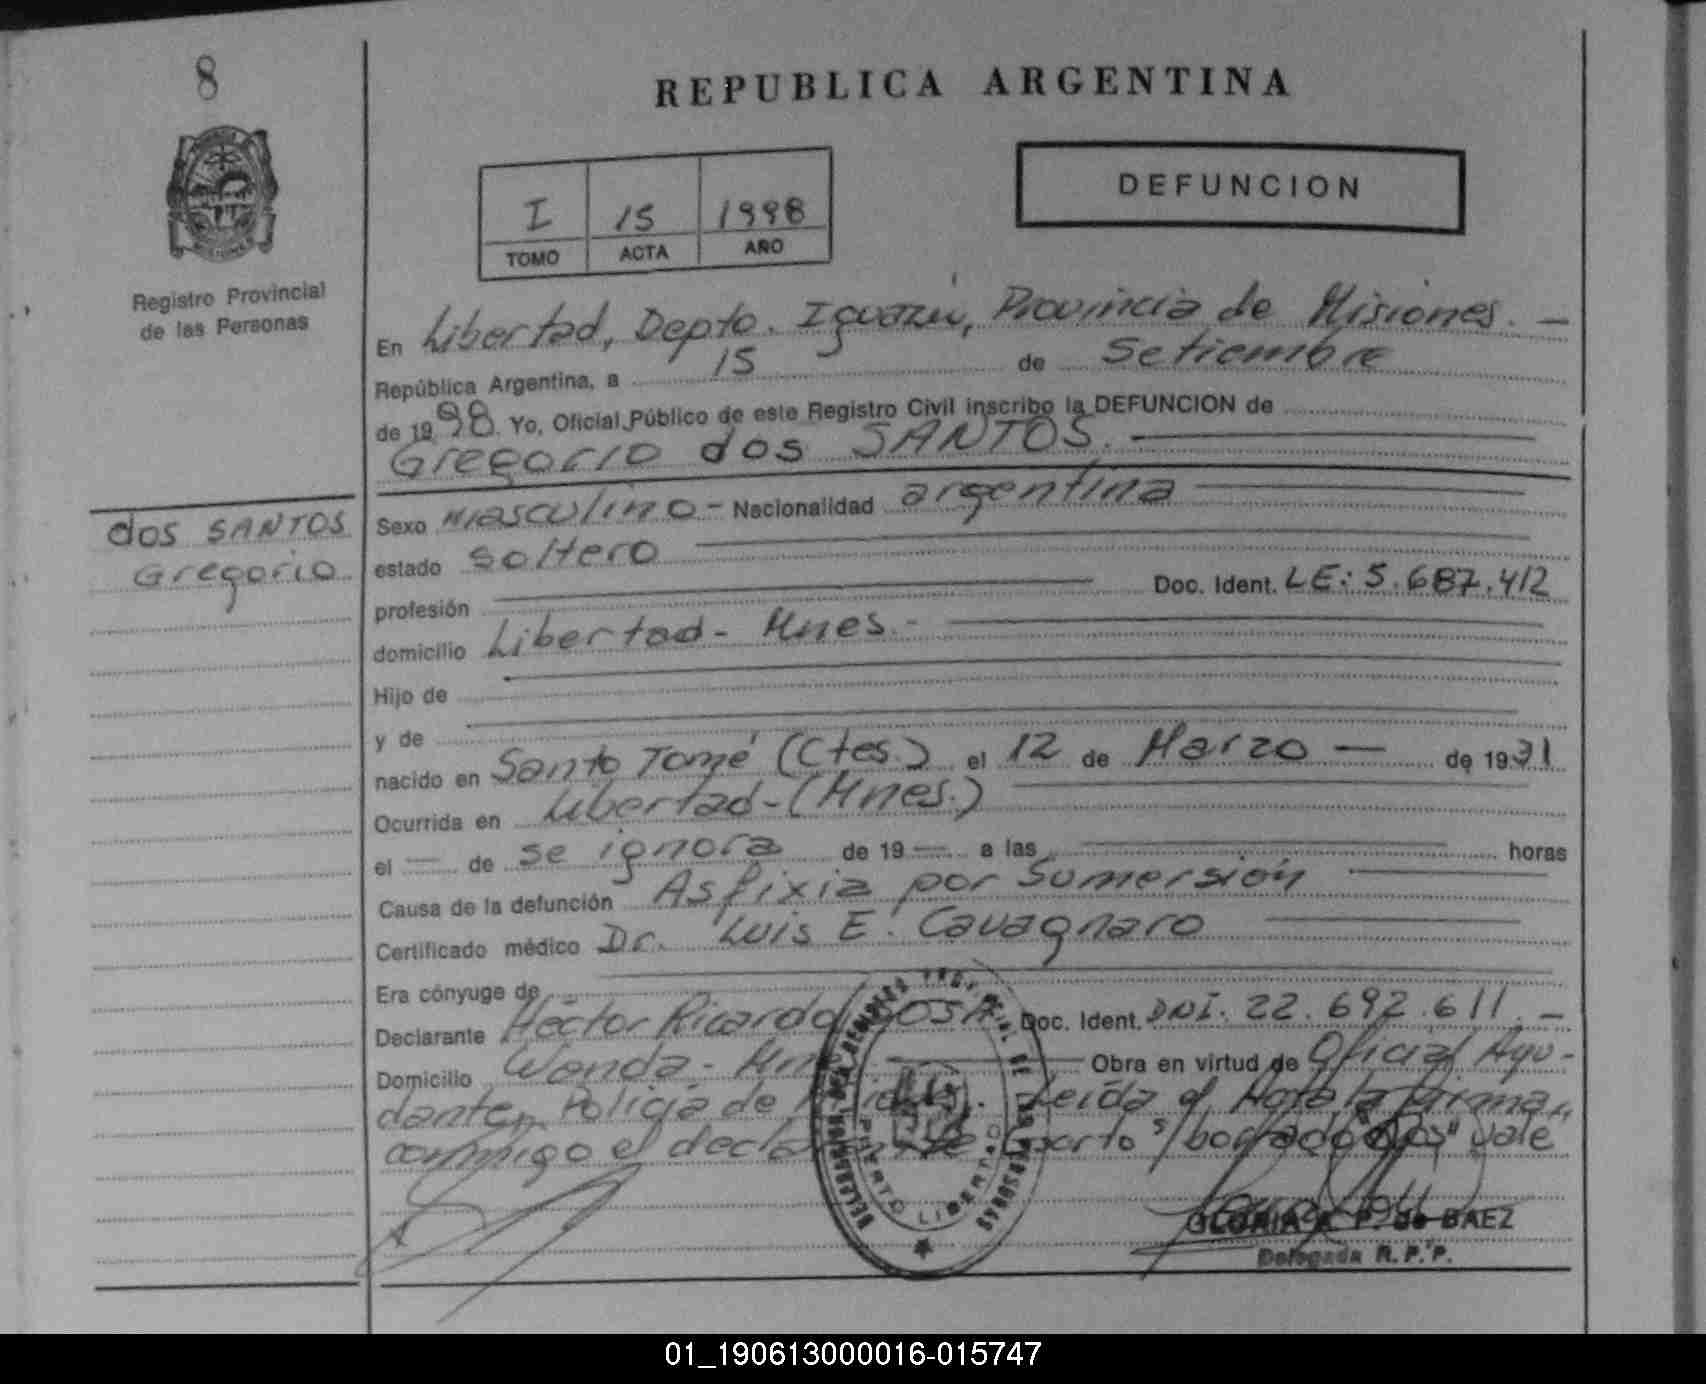 8
REPUBLICA ARGENTINA
I 15 1998
TOMO ACTA AÑO
DEFUNCION
Registro Provincial
de las Personas
En Libertad, Depto. Iguazú, Provincia de Misiones. —
República Argentina, a 15 de Setiembre
de 1998. Yo, Oficial Público de este Registro Civil inscribo la DEFUNCION de
Gregorio dos SANTOS.
dos SANTOS
Gregorio
Sexo masculino - Nacionalidad argentina
estado soltero
profesión Doc. Ident. LE: 5.687.412
domicilio Libertad - Mnes. -
Hijo de
y de
nacido en Santo Tomé (Ctes.) el 12 de Marzo — de 1931
Ocurrida en Libertad - (Mnes.)
el — de se ignora de 19 — a las horas
Causa de la defunción Asfixia por Sumersión
Certificado médico Dr. Luis E. Cavagnaro
Era cónyuge de
Declarante Héctor Ricardo SOSA Doc. Ident. DNI. 22.692.611. —
Domicilio Wanda - Obra en virtud de Oficial Ayu-
dante, Policía de Leída el Acta la firma,
conmigo el s/borrado "dos" vale
PUERTO LIBERTAD
GLORIA A. P. de BAEZ
Delegada R. P. P.
01_190613000016-015747